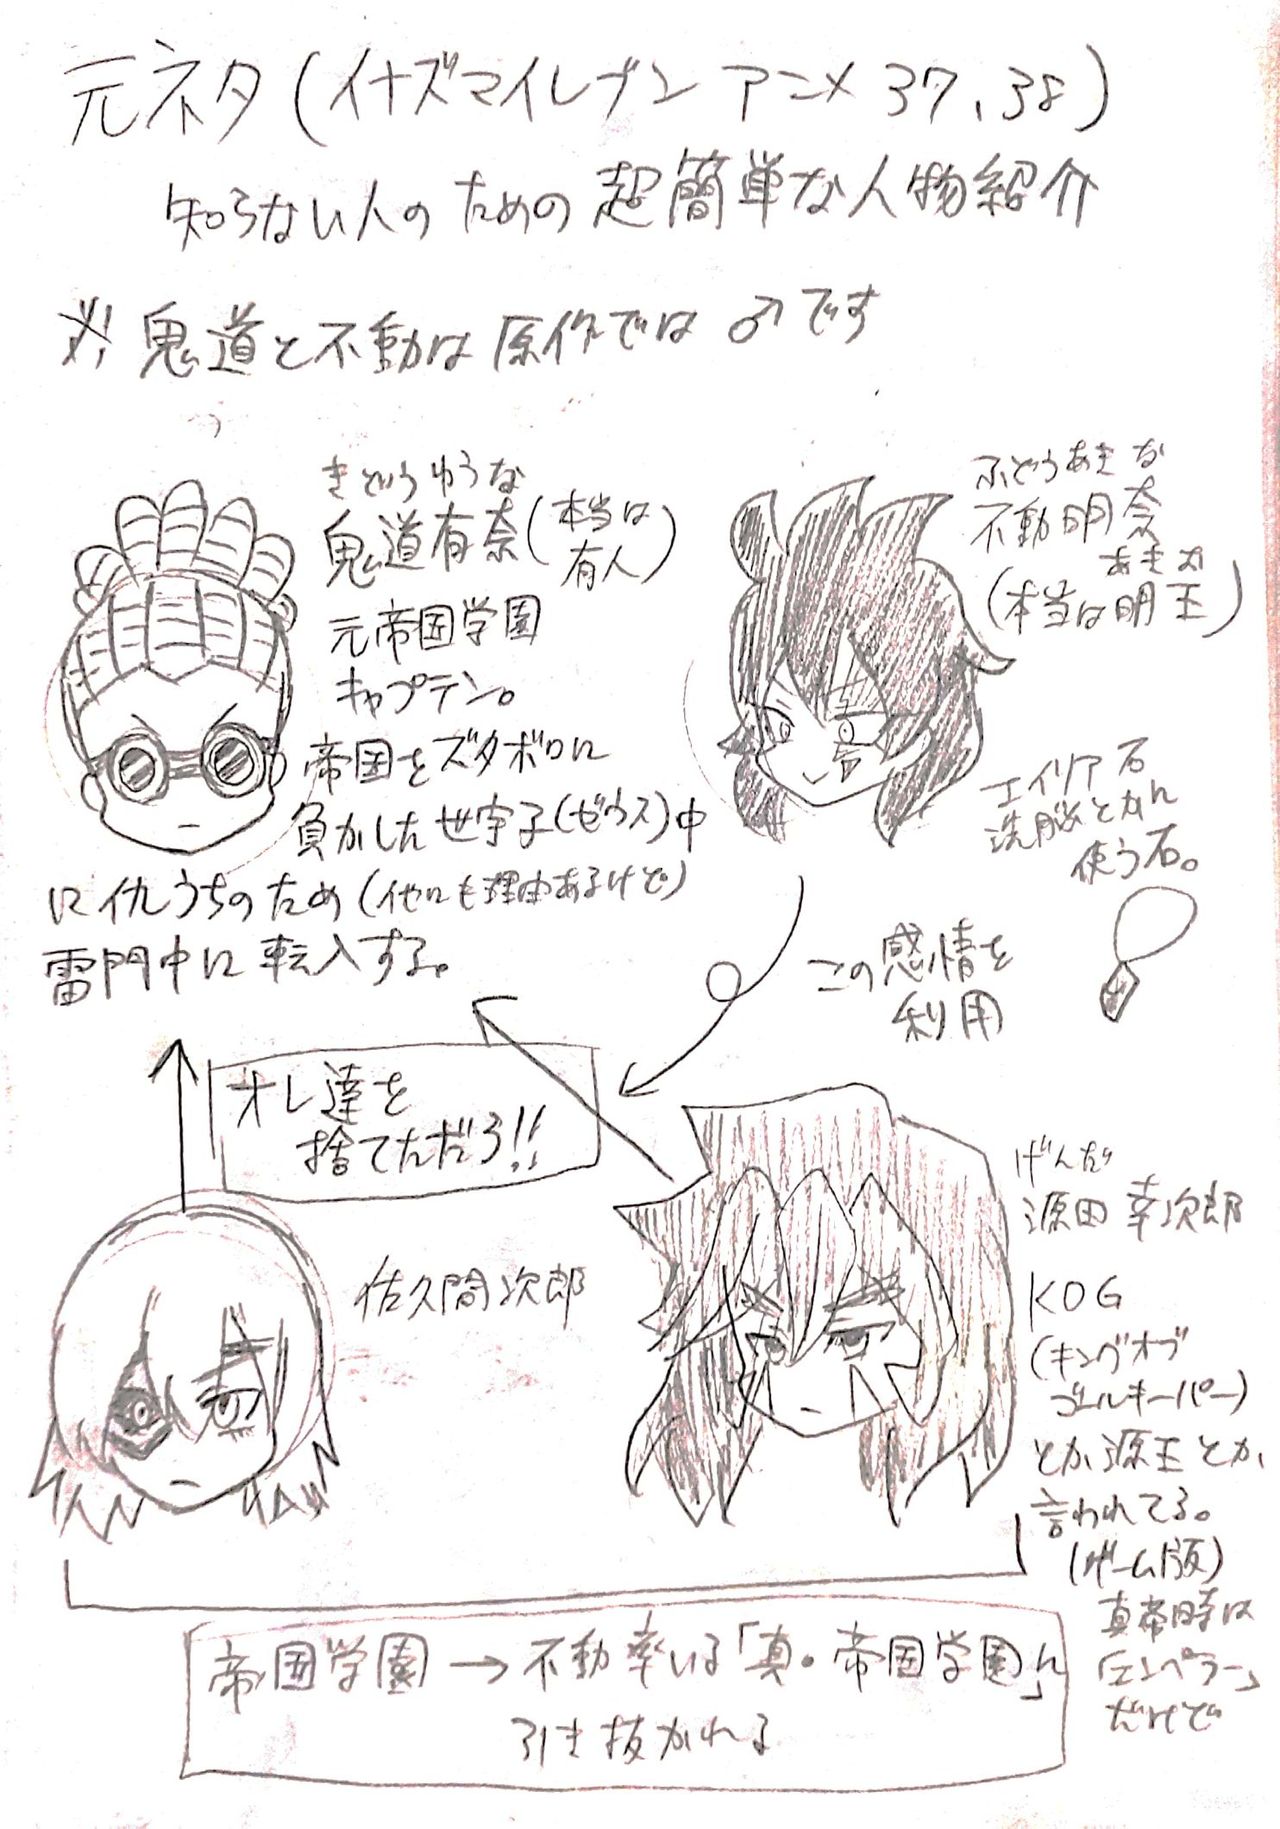 元ネタ(イナズマイレブン アニメ 37、38)
知らない人のための超簡単な人物紹介
※ 鬼道と不動は原作では♂です
きどうゆうな
鬼道有奈(本当は
有人)
元帝国学園
キャプテン。
帝国をズタボロに
負かした世宇子(ゼウス)中
に仇うちのため(他にも理由あるけど)
雷門中に転入する。
ふどうあきな
不動明奈
あきお
(本当は明王)
エイリア石
洗脳とかに
使う石。
この感情を
利用
オレ達を
捨てただろ!!
佐久間次郎
げんだ
源田幸次郎
KOG
(キングオブ
ゴールキーパー)
とか源王とか
言われてる。
(ゲーム版)
真帝時は
「エンペラー」
だけど
帝国学園→不動率いる「真・帝国学園」に
引き抜かれる